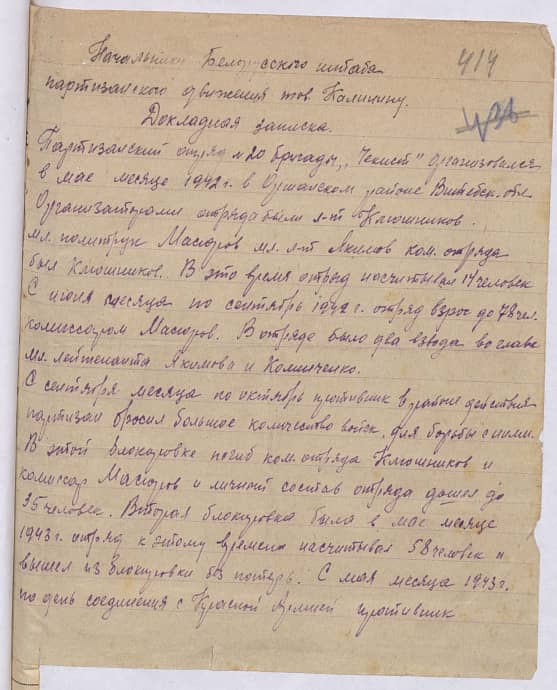 Начальнику Белорусского штаба
414
партизанского движения тов. Калинину.
Докладная записка.
Партизанский отряд №20 бригады „Чекист" организовался
в мае месяце 1942 г. в Оршанском районе Витебск. обл.
Организаторами отряда были л-т Клюшников.
мл. политрук Масюров мл. л-т Якимов ком. отряда
был Клюшников. В это время отряд насчитывал 14 человек
С июня месяца по сентябрь 1942 г. отряд взрос до 78 чел.
комиссаром Масюров. В отряде было два взвода во главе
мл. лейтенанта Якимова и Комниченко.
С сентября месяца по октябрь противник в районе действия
партизан бросил большое количество войск для борьбы с ними.
В этой блокировке погиб ком. отряда Клюшников и
комиссар Масюров и личный состав отряда дошел до
35 человек. Вторая блокировка была в мае месяце
1943 г. отряд к этому времени насчитывал 58 человек и
вышел из блокировки без потерь. С мая месяца 1943 г.
по день соединения с Красной Армией противник